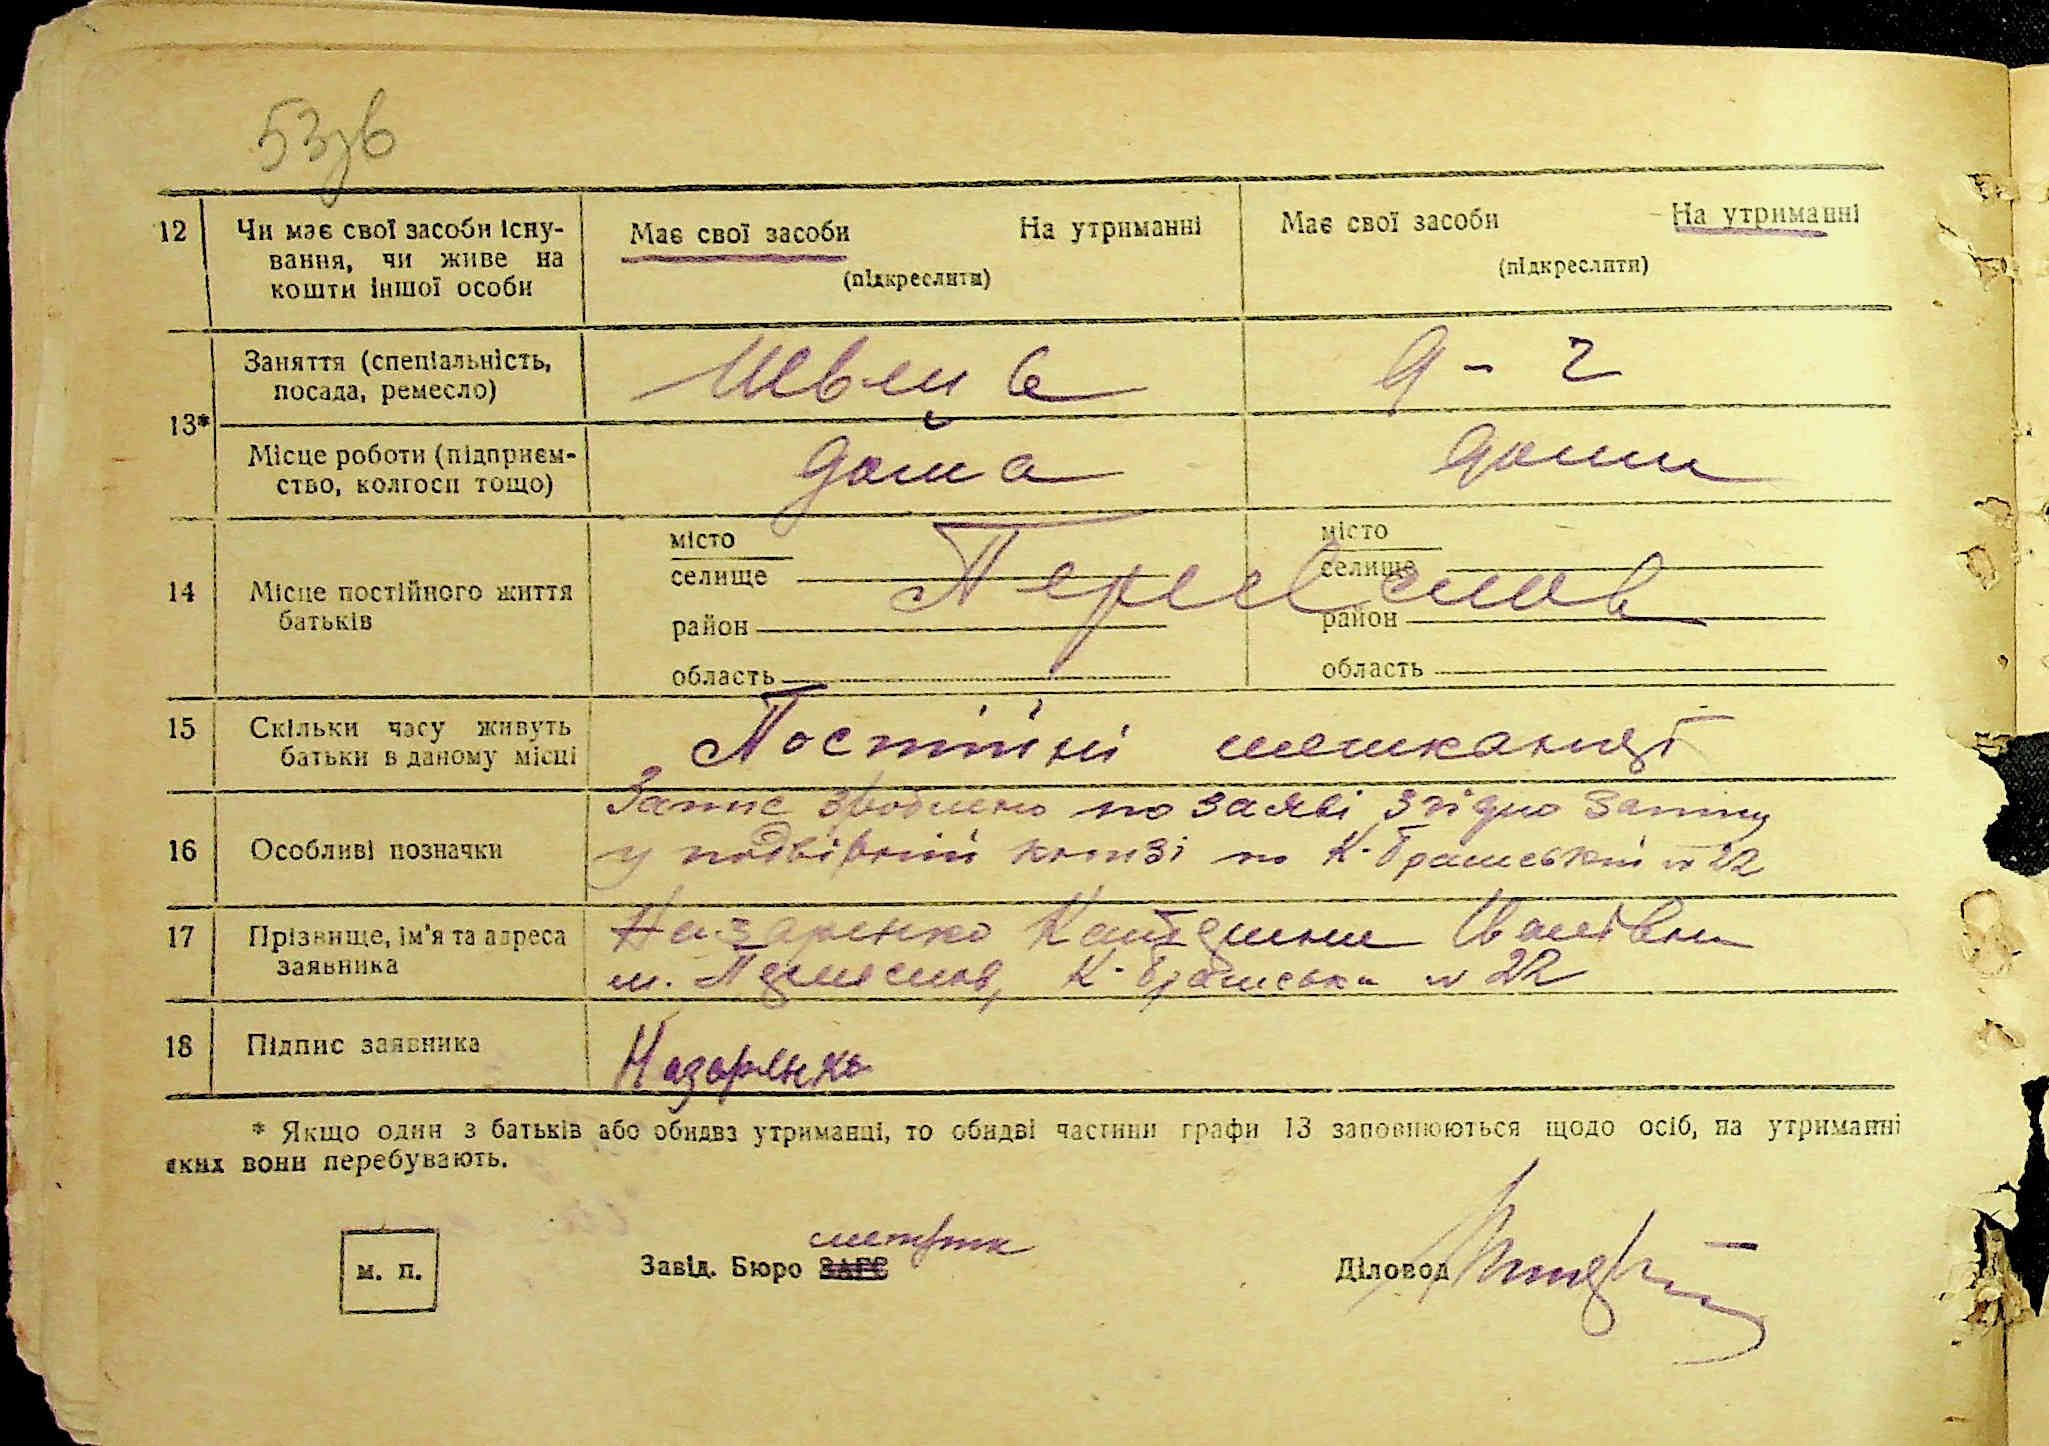 53зв
12 Чи має свої засоби існу-
вання, чи живе на
кошти іншої особи
Має свої засоби На утриманні
(підкреслити)
Має свої засоби На утриманні
(підкреслити)
13*
Заняття (спеціальність,
посада, ремесло)
Швець
д-г
Місце роботи (підприєм-
ство, колгосп тощо)
дома
дома
14 Місце постійного життя
батьків
місто
селище
район
область
Переяслов
місто
селище
район
область
15 Скільки часу живуть
батьки в даному місці
Постійні мешканці
16 Особливі позначки
Запис зроблено по заяві згідно запису
у подвірній книзі по К. №22
17 Прізвище, ім'я та адреса
заявника
Назаренко Іванівни
м. Переяслов, К. № 22
18 Підпис заявника
Назаренко
* Якщо один з батьків або обидва утриманці, то обидві частини графи 13 заповнюються щодо осіб, на утриманні
яких вони перебувають.
м. п.
метрик
Завід. Бюро ЗАГС
Діловод